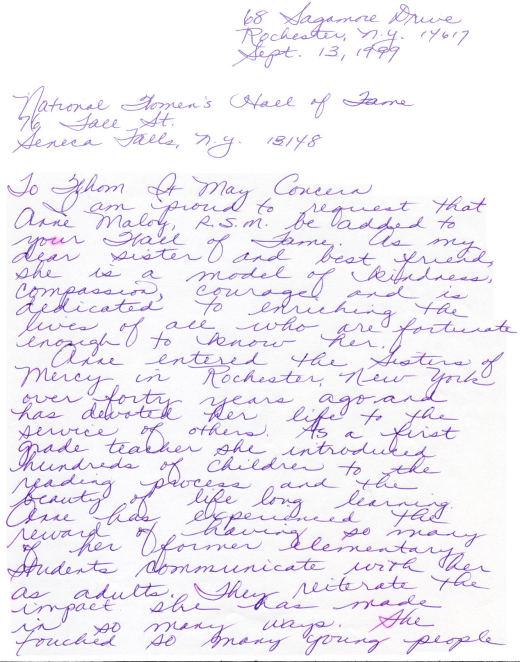 68 Sagamore Drive
Rochester, N.Y. 14617
Sept. 13, 1999
National Women's Hall of Fame
76 Fall St.
Seneca Falls, N.Y. 13148
To Whom It May Concern
I am proud to request that
Anne Maloy, R.S.M. be added to
your Hall of Fame. As my
dear sister and best friend,
she is a model of kindness,
compassion, courage, and is
dedicated to enriching the
lives of all who are fortunate
enough to know her.
Anne entered the Sisters of
Mercy in Rochester, New York
over forty years ago and
has devoted her life to the
service of others. As a first
grade teacher she introduced
hundreds of children to the
reading process and the
beauty of life long learning.
Anne has experienced the
reward of having so many
of her former elementary
students communicate with her
as adults. They reiterate the
impact she has made
in so many ways. She
touched so many young people